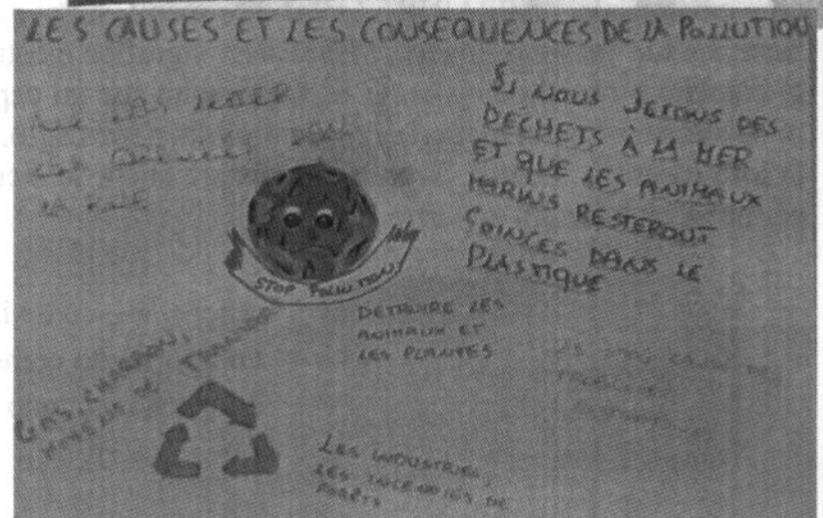 LES CAUSES ET LES CONSEQUENCES DE LA POLLUTION
NE PAS JETER
LA RUE
SI NOUS JETONS DES
DÉCHETS À LA MER
ET QUE LES ANIMAUX
MARINS RESTERONT
COINCES DANS LE
PLASTIQUE
STOP POLLUTION
DETRUIRE LES
ANIMAUX ET
LES PLANTES
GAS, CHARBON,
DE
LES INDUSTRIES,
LES INCENDIES DE
FORÊTS